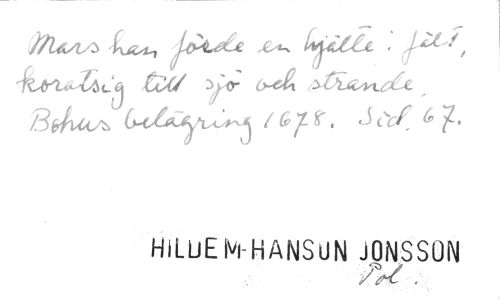 Mars han förde en hjälte i fält,
koratsig till sjö och strande.
Bohus belägring 1678. Sid. 67.
HILDEM-HANSUN JONSSON
Pol.